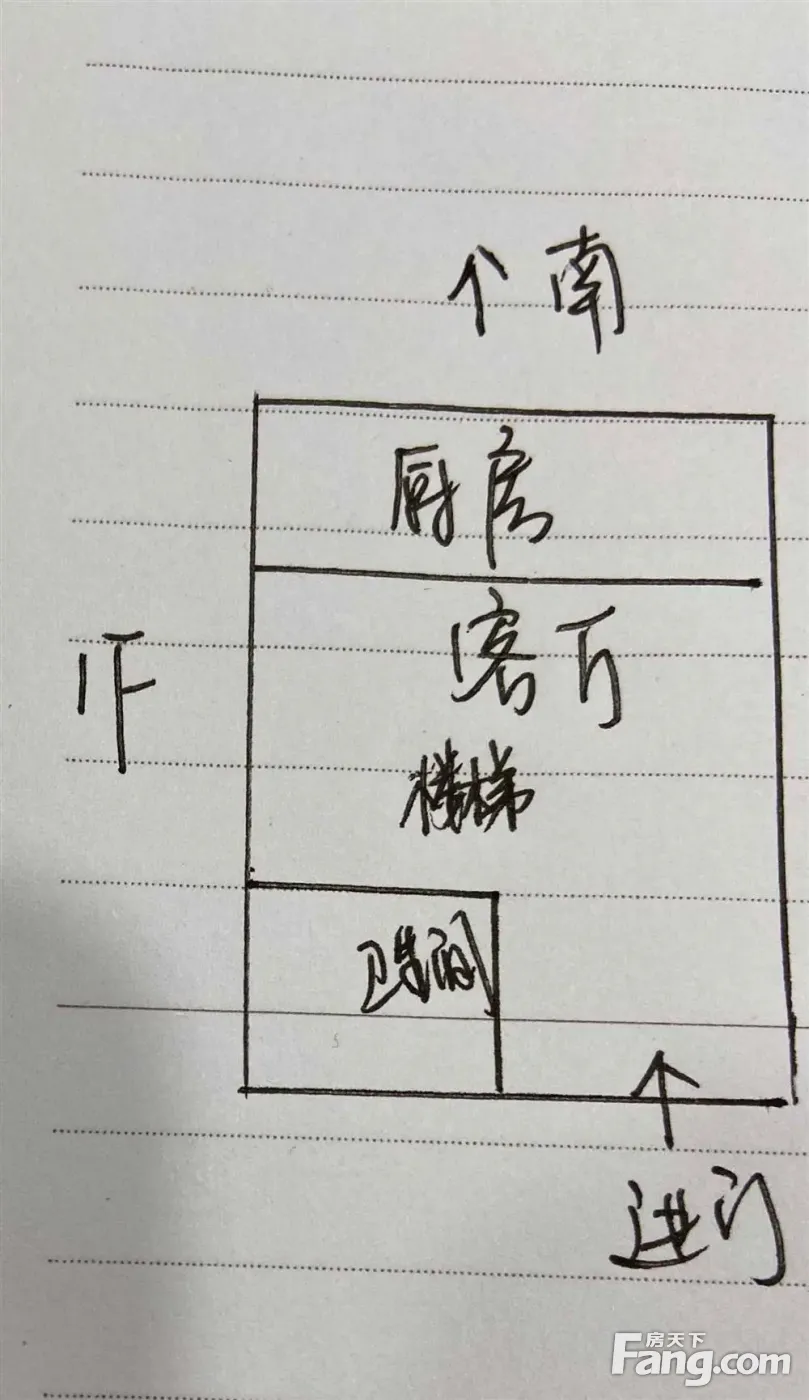 个 南
厨房
客厅
1下
楼梯
卫生间
进门
房天下
Fang.com